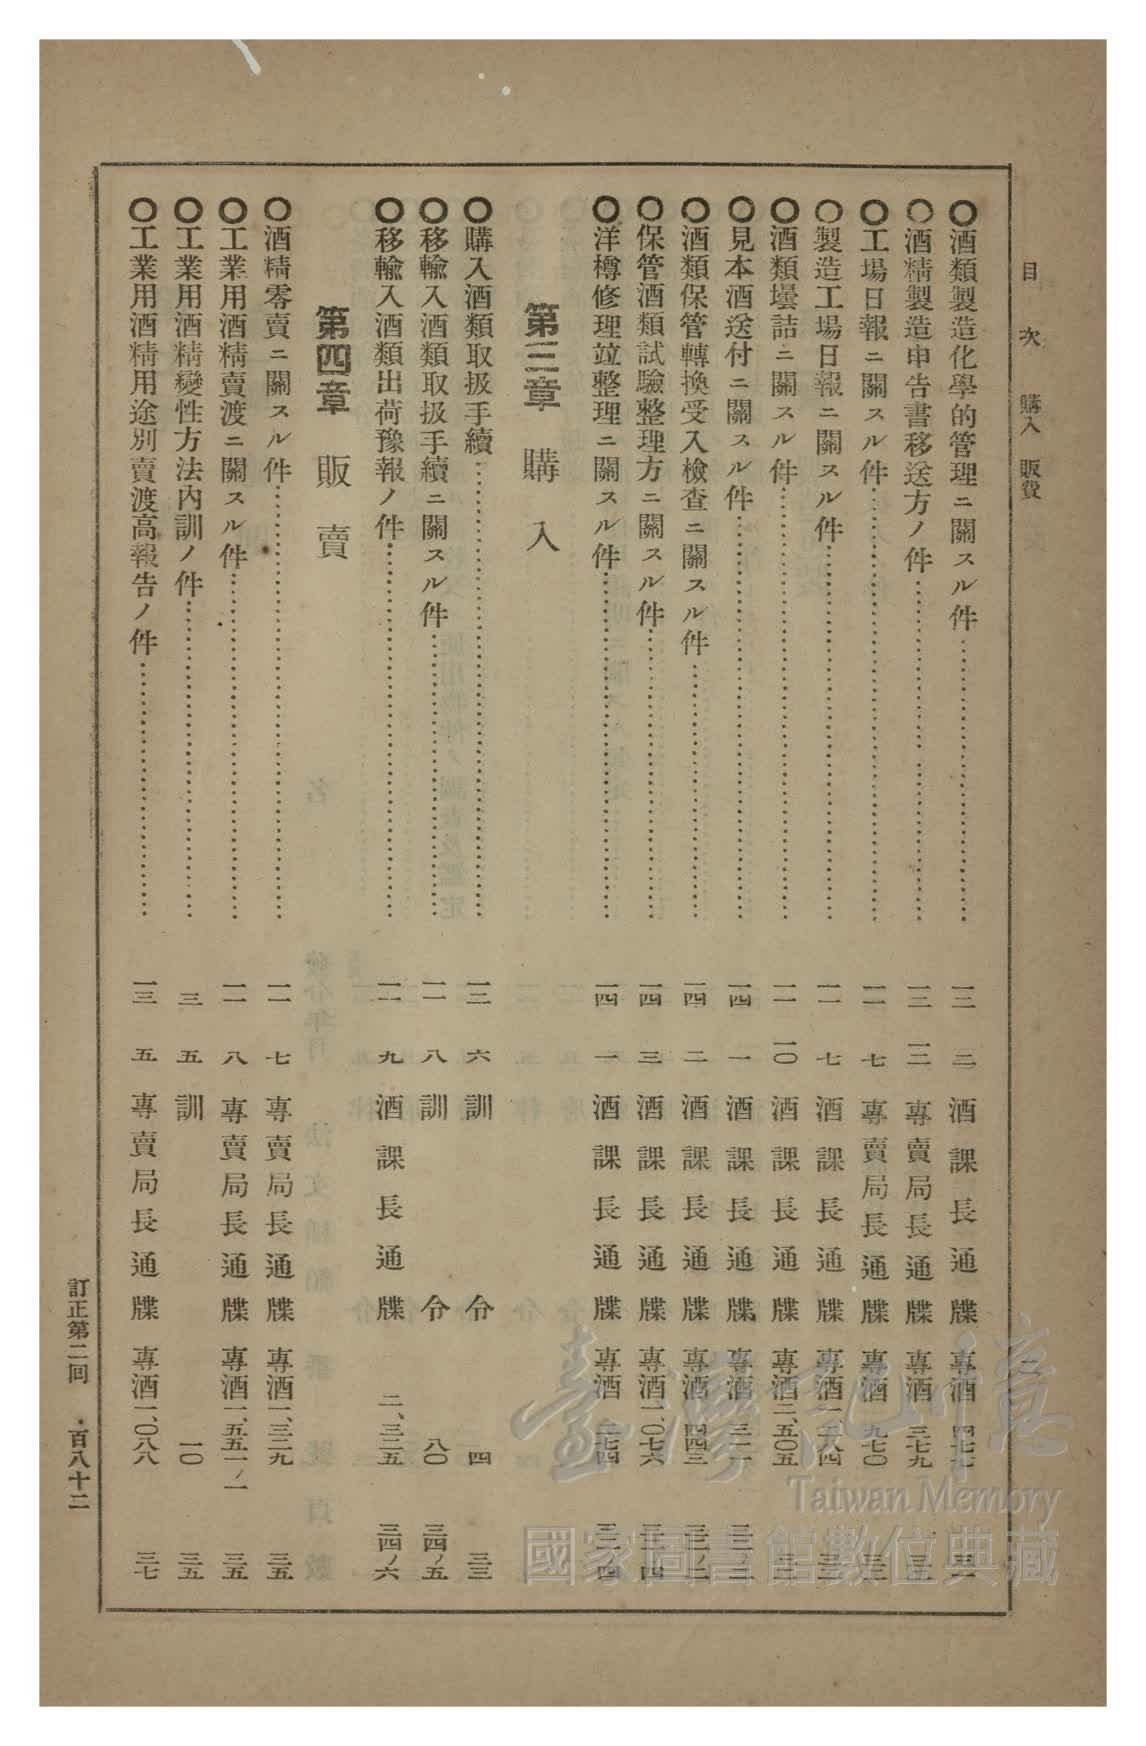 目次 購入 販賣
〇酒類製造化學的管理ニ關スル件 一三 二 酒課長通牒 專酒 四七七
〇酒精製造申告書移送方ノ件 一三 一二 專賣局長通牒 專酒 三七九
〇工場日報ニ關スル件 七 專賣局長通牒 專酒 九七〇
〇製造工場日報ニ關スル件 一一 七 酒課長通牒 專酒
〇酒類壜詰ニ關スル件 一一 一〇 酒課長通牒 專酒二、五〇五
〇見本酒送付ニ關スル件 一四 一 酒課長通牒 專酒
〇酒類保管轉換受入檢查ニ關スル件 一四 二 酒課長通牒 專酒 四四三
〇保管酒類試驗整理方ニ關スル件 一四 三 酒課長通牒 專酒一、〇七六
〇洋樽修理竝整理ニ關スル件 一四 一 酒課長通牒 專酒
第三章 購入
〇購入酒類取扱手續 六 訓令 四 三三
〇移輸入酒類取扱手續ニ關スル件 一一 八 訓令 八〇 三四ノ五
〇移輸入酒類出荷豫報ノ件 一一 九 酒課長通牒 二、三二五 三四ノ六
第四章 販賣
〇酒精零賣ニ關スル件 一一 七 專賣局長通牒 專酒一、三二九 三五
〇工業用酒精賣渡ニ關スル件 一一 八 專賣局長通牒 專酒一、五五一ノ一 三五
〇工業用酒精變性方法內訓ノ件 三 五 訓 一〇 三五
〇工業用酒精用途別賣渡高報告ノ件 一三 五 專賣局長通牒 專酒一、〇八八 三七
訂正第二回 ・百八十二
臺灣記憶
Taiwan Memory
國家圖書館數位典藏